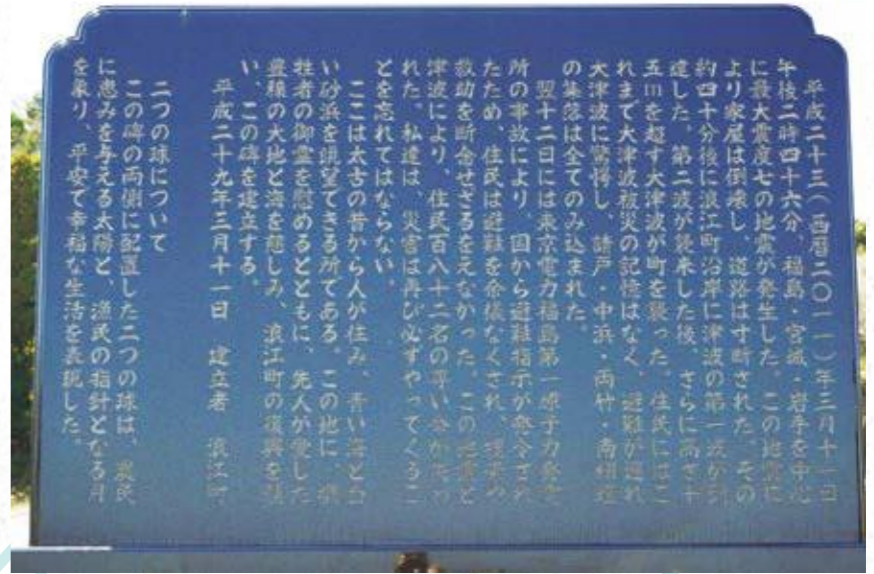 平成二十三(西暦二〇一一)年三月十一日
午後二時四十六分、福島・宮城・岩手を中心
に最大震度七の地震が発生した。この地震に
より家屋は倒壊し、道路は寸断された。その
約四十分後に浪江町沿岸に津波の第一波が到
達した。第二波が襲来した後、さらに高さ十
五mを超す大津波が町を襲った。住民にはこ
れまで大津波被災の記憶はなく、避難が遅れ
大津波に驚愕し、請戸・中浜・両竹・南棚塩
の集落は全てのみ込まれた。
翌十二日には東京電力福島第一原子力発電
所の事故により、国から避難指示が発令され
たため、住民は避難を余儀なくされ、捜索や
救助を断念せざるをえなかった。この地震と
津波により、住民百八十二名の尊い命が失わ
れた。私達は、災害は再び必ずやってくるこ
とを忘れてはならない。
ここは太古の昔から人が住み、青い海と白
い砂浜を眺望できる所である。この地に、犠
牲者の御霊を慰めるとともに、先人が愛した
豊穣の大地と海を慈しみ、浪江町の復興を願
い、この碑を建立する。
平成二十九年三月十一日 建立者 浪江町
二つの球について
この碑の両側に配置した二つの球は、農民
に恵みを与える太陽と、漁民の指針となる月
を象り、平安で幸福な生活を表現した。